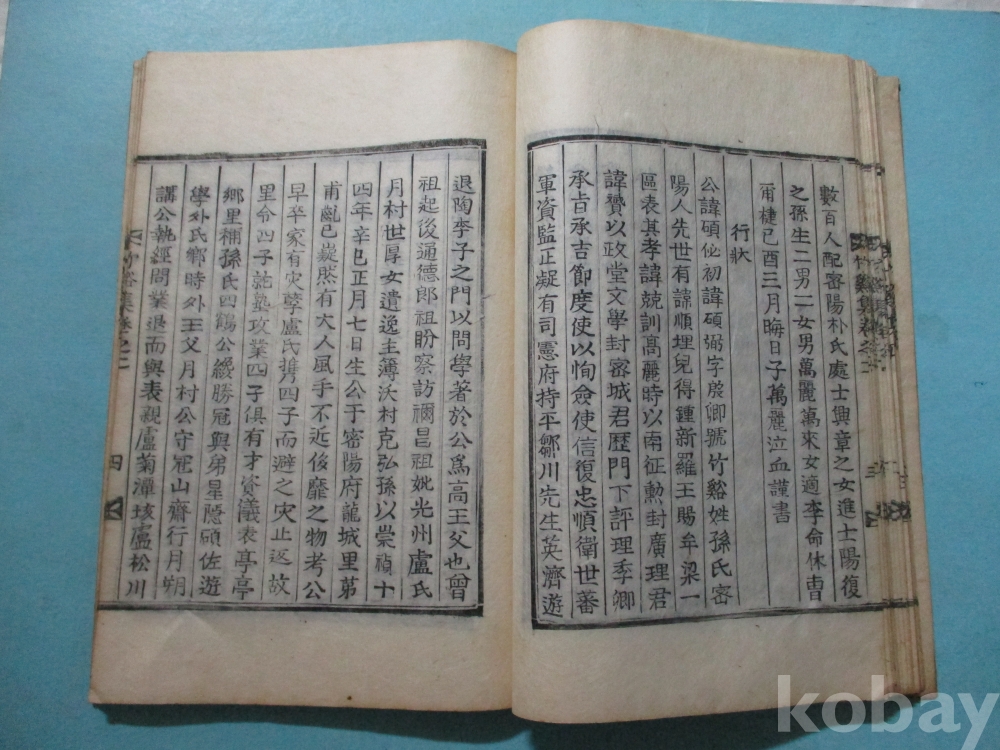 數百人配密陽朴氏處士興章之女進士陽復
之孫生二男二女男萬麗萬來女適李命休曺
甭楗己酉三月晦日子萬麗泣血謹書
行狀
公諱碩佖初諱碩弼字殷卿號竹谿姓孫氏密
陽人先世有諱順埋兒得鍾新羅王賜牟梁一
區表其孝諱兢訓高麗時以南征勳封廣理君
諱贊以政堂文學封密城君歷門下評理季卿
承旨承吉節度使以恂僉使信復忠順衛世蕃
軍資監正凝有司憲府持平鄒川先生英濟遊
退陶李子之門以問學著於公爲高王父也曾
祖起後通德郎祖盼察訪禰昌祖妣光州盧氏
月村世厚女遺逸主簿沃村克弘孫以崇禎十
四年辛巳正月七日生公于密陽府龍城里第
甫齔已嶷然有大人風手不近侈靡之物考公
早卒家有灾孽盧氏携四子而避之灾止返故
里令四子就塾攻業四子俱有才資議表亭亭
鄉里稱孫氏四鶴公纔勝冠與弟星隱碩佐遊
學外氏鄉時外王父月村公守冠山齋行月朔
講公執經問業退而與表親盧菊潭垓盧松川
竹谿集卷之二
四
kobay